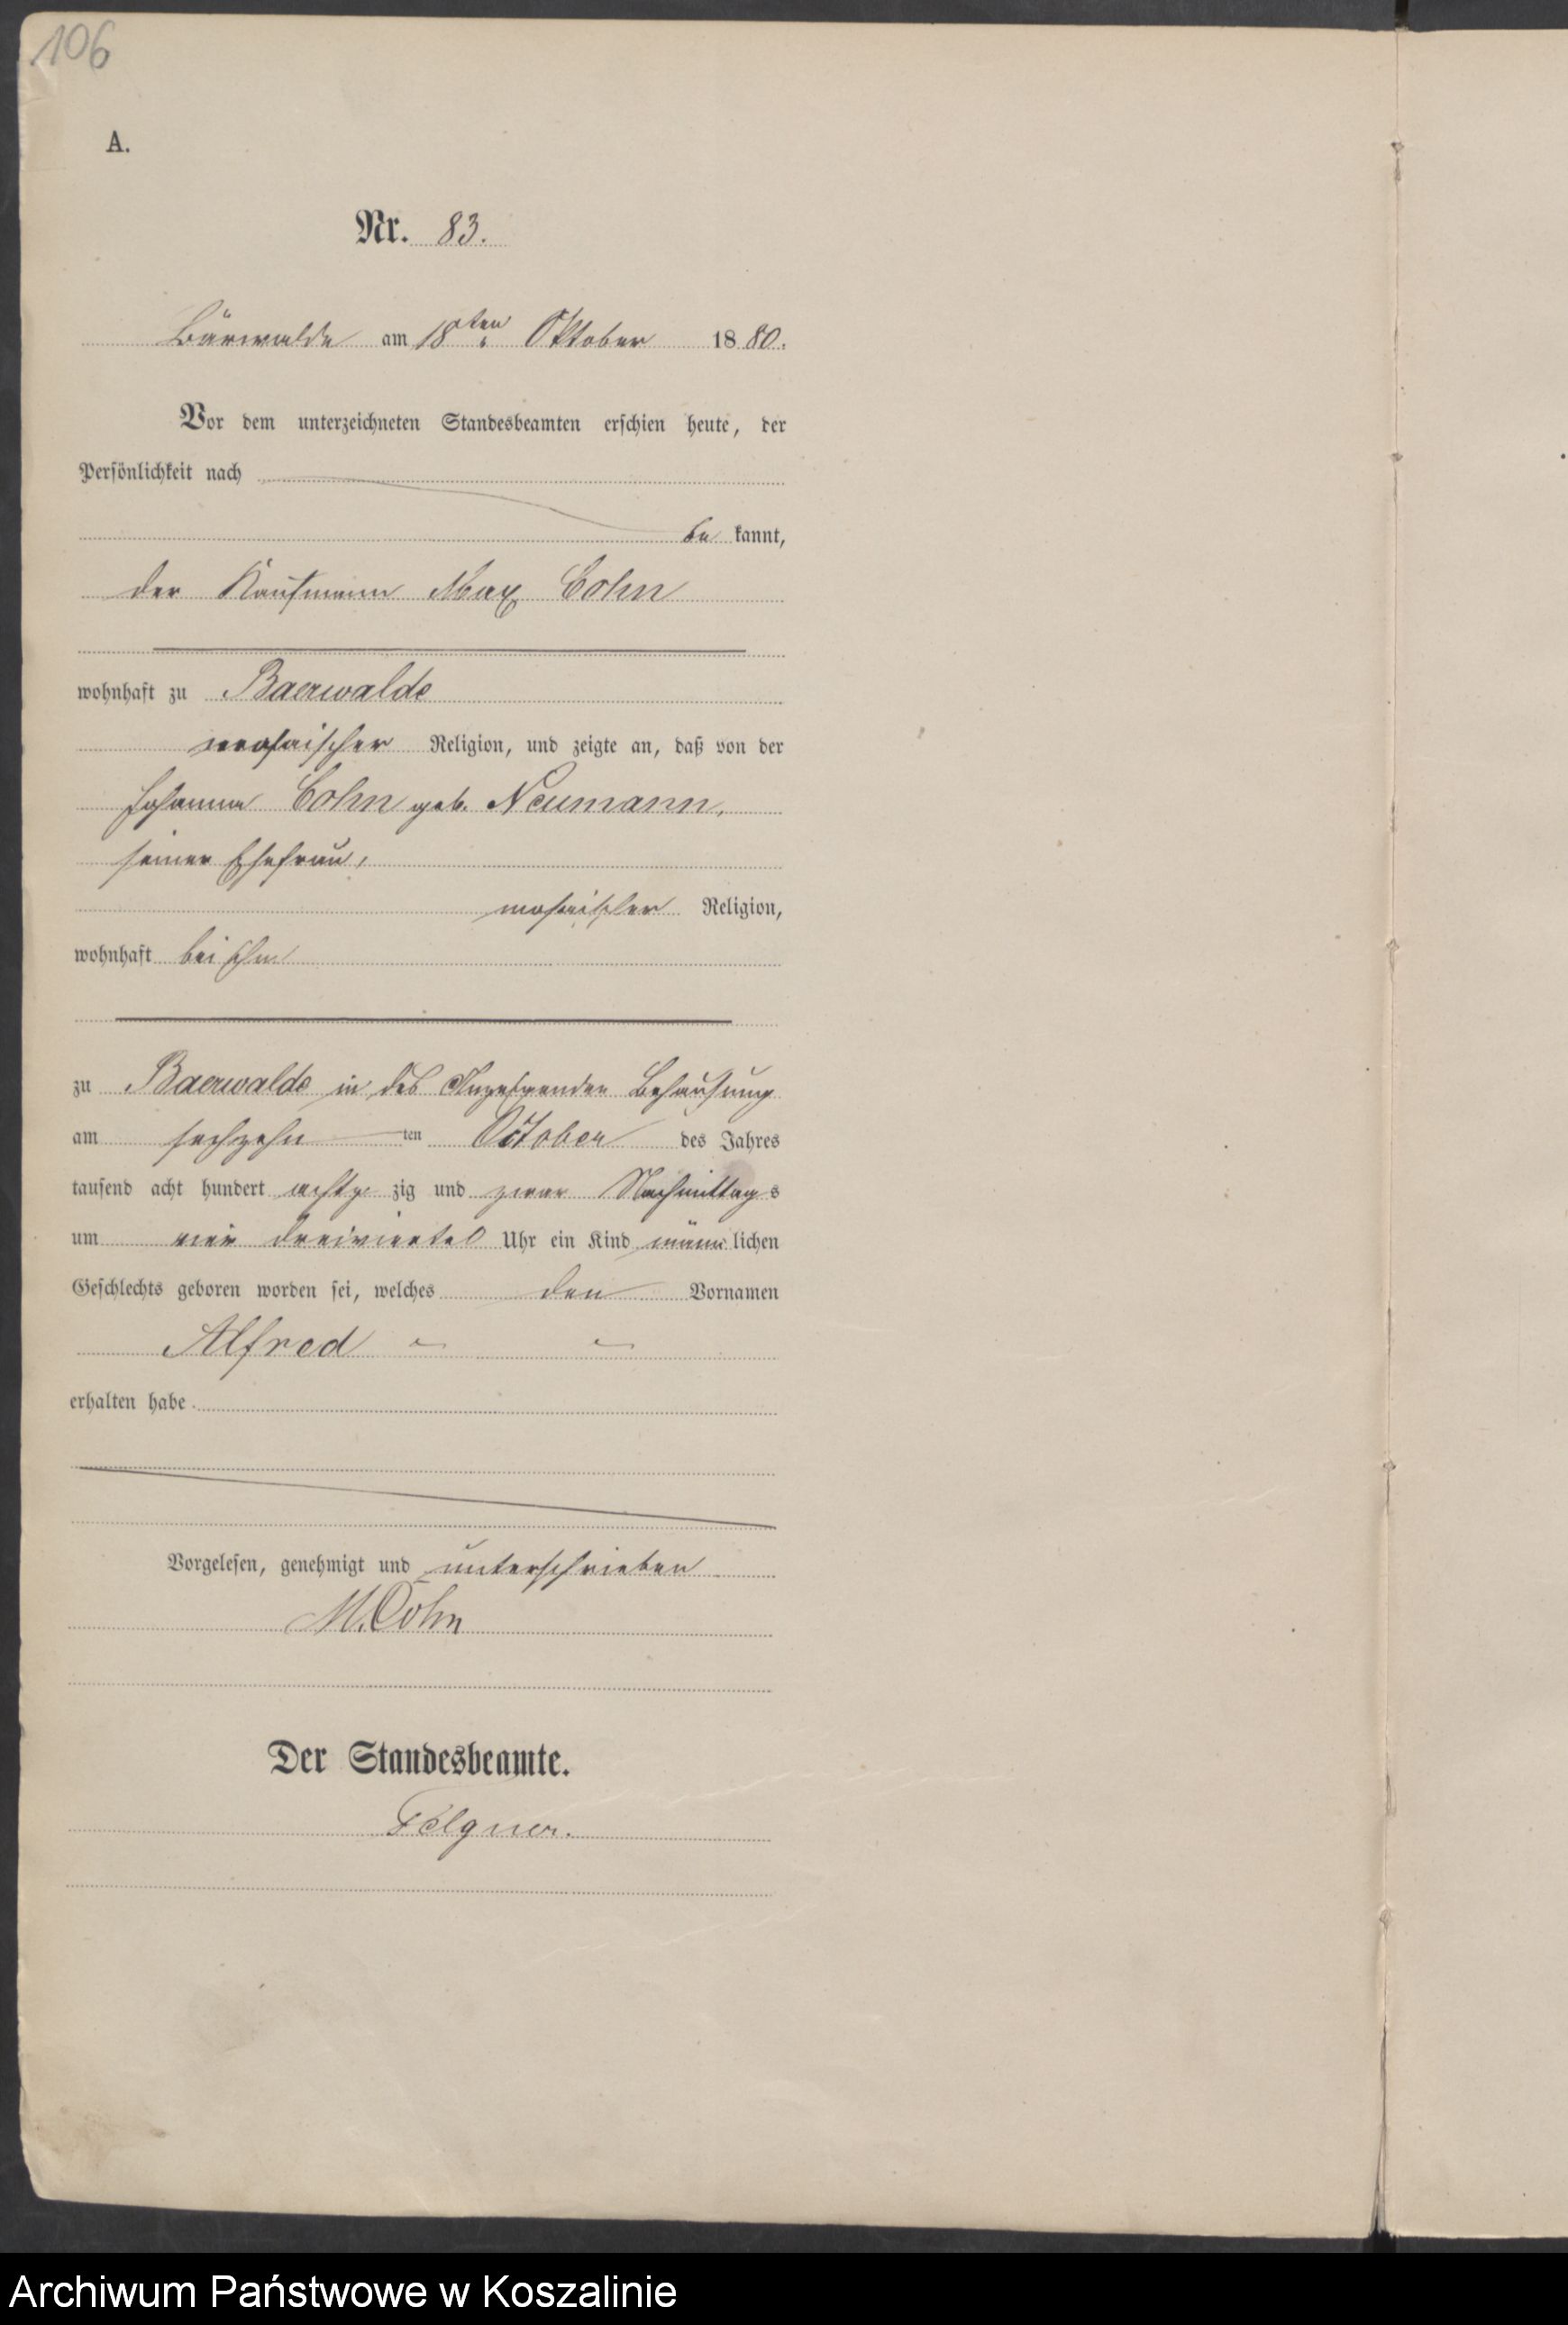 106
A.
Nr. 83.
Bärwalde am 18ten Oktober 1880.
Vor dem unterzeichneten Standesbeamten erschien heute, der
Persönlichkeit nach
be kannt,
der Kaufmann Max Cohn
wohnhaft zu Baerwalde
mosaischer Religion, und zeigte an, daß von der
Johanna Cohn geb. Neumann,
seiner Ehefrau,
mosaischer Religion,
wohnhaft bei ihm
zu Baerwalde in des Anzeigenden Behausung
am sechzehn ten October des Jahres
tausend acht hundert acht zig und zwar Nachmittags
um vier dreiviertel Uhr ein Kind männlichen
Geschlechts geboren worden sei, welches den Vornamen
Alfred
erhalten habe.
Vorgelesen, genehmigt und unterschrieben
M. Cohn
Der Standesbeamte.
Felgner.
Archiwum Państwowe w Koszalinie